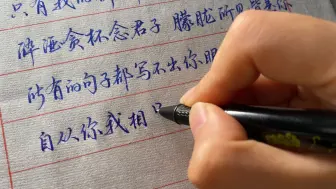 只有我
醉酒贪杯念君子 朦胧所见皆是你
所有的句子都写不出你眼
自从你我相